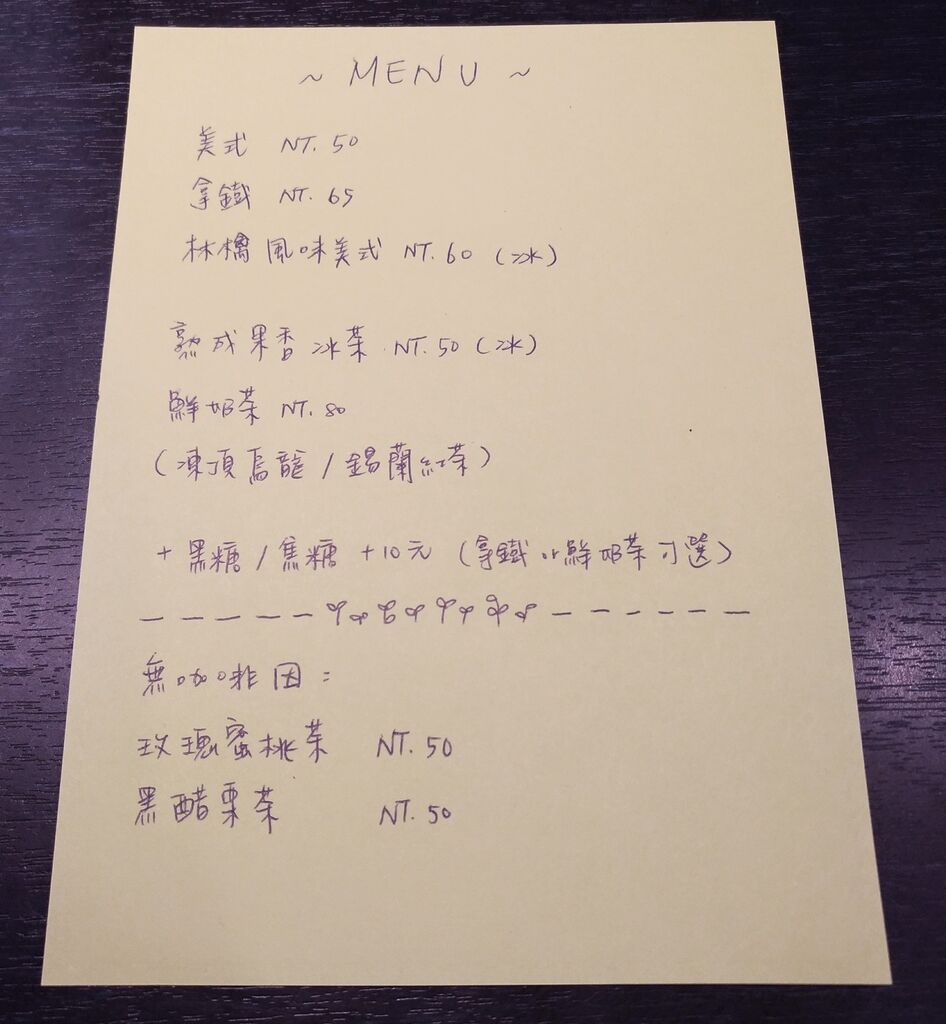 ~ MENU ~
美式 NT. 50
拿鐵 NT. 65
林檎風味美式 NT. 60 (冰)
熟成果香冰茶 NT. 50 (冰)
鮮奶茶 NT. 80
(凍頂烏龍 / 錫蘭紅茶)
+ 黑糖 / 焦糖 +10元 (拿鐵 or 鮮奶茶可選)
無咖啡因:
玫瑰蜜桃茶 NT. 50
黑醋栗茶 NT. 50